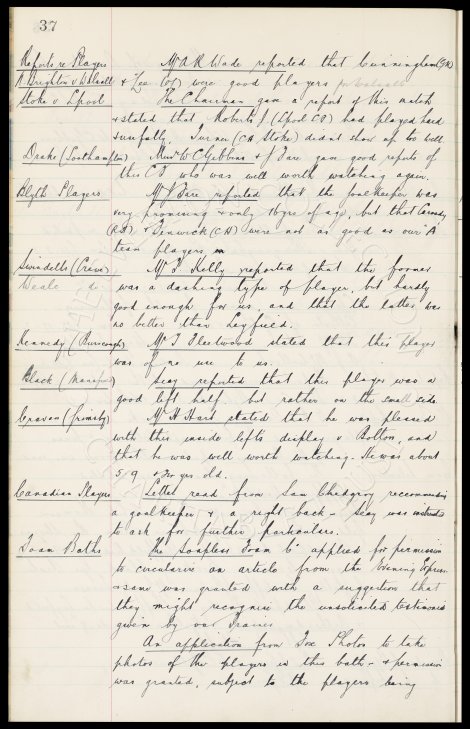 37
Reports re Players Mr A R Wade reported that Cunningham (GK)
N. Brighton v Walsall & Lea (OL) were good players for Walsall
Stoke v L'pool The Chairman gave a report of this match
& stated that Roberts J. (L'pool CF) had played hard
& usefully. Turner (CH Stoke) didnt show up too well.
Drake (Southampton) Messrs W C Gibbins & J Fare gave good reports of
this CF who was well worth watching again.
Blyth Players Mr J Fare reported that the goalkeeper was
very promising & only 16 yrs of age, but that
(RB) & Fenwick (CH) were not as good as our 'A'
team players
Swindells (Crewe) Mr T. Kelly reported that the former
Weale do was a dashing type of player, but hardly
good enough for us, and that the latter was
no better than Leyfield.
Kennedy (Burscough) Mr J Fleetwood stated that this player
was of no use to us.
Black (Mansfield) Secy reported that this player was a
good left half, but rather on the small side.
Craven (Grimsby) Mr H Hard stated that he was pleased
with this inside left's display v Bolton, and
that he was well worth watching. He was about
5/9 & yrs old.
Canadian Players Letter read from Sam Chedgzoy reccommending
a goalkeeper & a right back - Secy was instructed
to ask for further particulars.
Foam Baths The Soapless Foam Co applied for permission
to circularise an article from the Evening Express
& same was granted with a suggestion that
they might recognise the unsolicited testimonial
given by our Trainer
An application from Fox Photos to take
photos of the players in this bath - & permission
was granted, subject to the players being